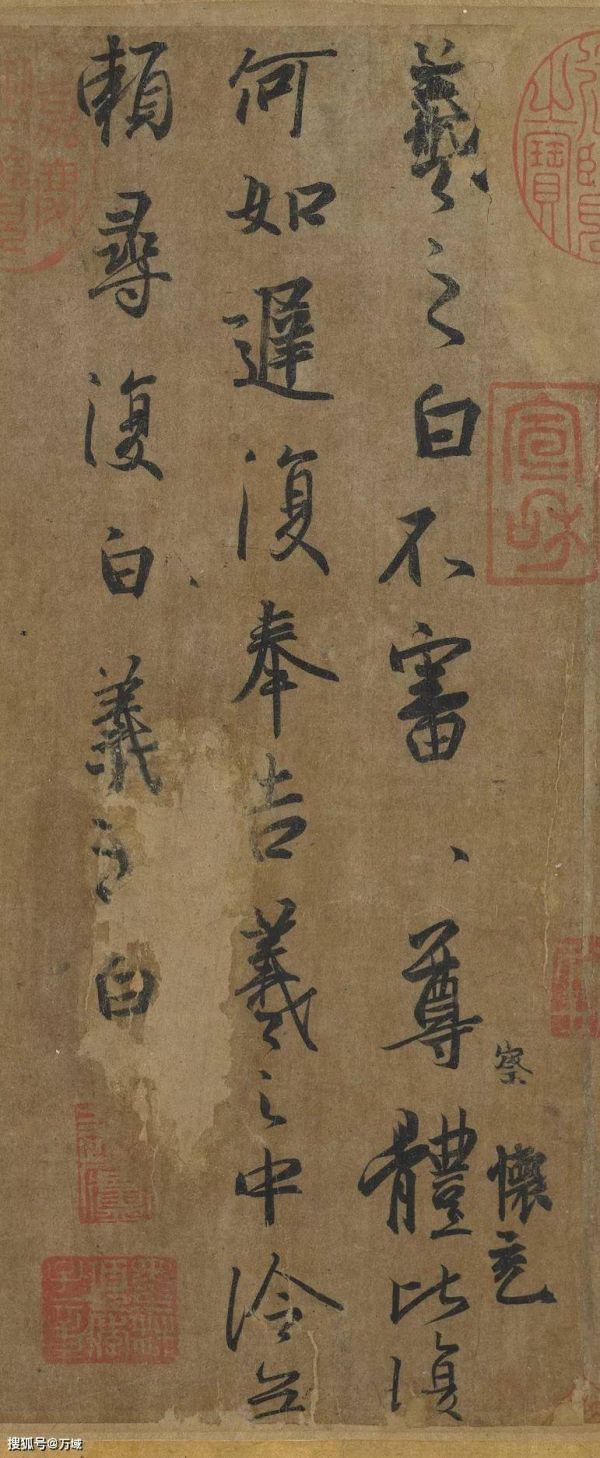 察
懷充
羲之白不審尊體比復
何如遲復奉告羲之中冷無
賴尋復白羲之白
宣和
搜狐号@万域